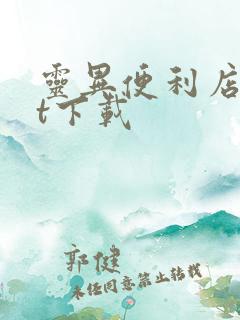 靈異便利店
t下載
郭健
未經同意禁止轉載